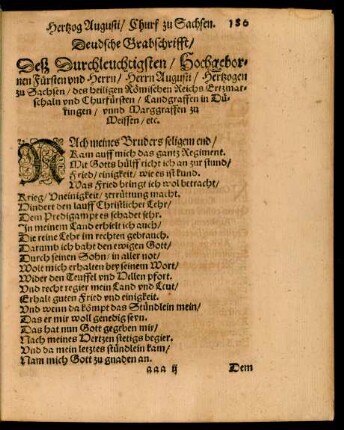 Hertzog Augusti/ Churf zu Sachsen. 186
Deudsche Grabschrifft/
Deß Durchleuchtigsten/ Hochgebor-
nen Fürsten vnd Herrn/ Herrn Augusti/ Hertzogen
zu Sachsen/ des heiligen Römischen Reichs Ertzmar-
schaln vnd Churfürsten/ Landgraffen in Dü-
ringen/ vnnd Marggraffen zu
Meissen/ etc.
NAch meines Bruders seligem end/
Kam auff mich das gantz Regiment.
Mit Gotts hülff richt ich an zur stund/
Fried/ einigkeit/ wie es ist kund.
Was Fried bringt ich wol betracht/
Krieg/ Vneinigkeit/ zerrüttung macht.
Hindert den lauff Christlicher Lehr/
Dem Predigampt es schadet sehr.
In meinem Land erhielt ich auch/
Die reine Lehr im rechten gebrauch.
Darumb ich baht den ewigen Gott/
Durch seinen Sohn/ in aller not/
Wolt mich erhalten bey seinem Wort/
Wider den Teuffel vnd Hellen pfort.
Vnd recht regier mein Land vnd Leut/
Erhalt guten Fried vnd einigkeit.
Vnd wenn da kömpt das Stündlein mein/
Das er mir woll genedig seyn.
Das hat nun Gott gegeben mir/
Nach meines Hertzen stetigs begier.
Vnd da mein letztes stündlein kam/
Nam mich Gott zu gnaden an.
aaa ij Dem